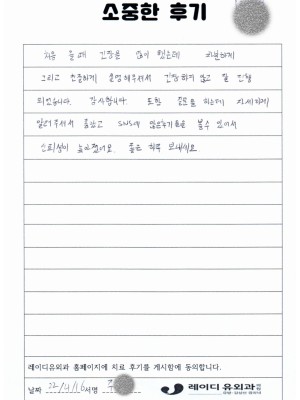 소중한 후기
처음 올때 긴장을 많이 했는데 친절하게
그리고 소중하게 설명해주셔서 긴장하지 않고 잘 진행
되었습니다. 감사합니다. 또한 소독 하는데 자세하게
알려주셔서 좋았고 SNS에 많은후기들을 볼수 있어서
신뢰성이 높아졌어요. 좋은 하루 보내세요.
레이디유외과 홈페이지에 치료 후기를 게시함에 동의합니다.
날짜 22/11/16 서명
레이디 유외과